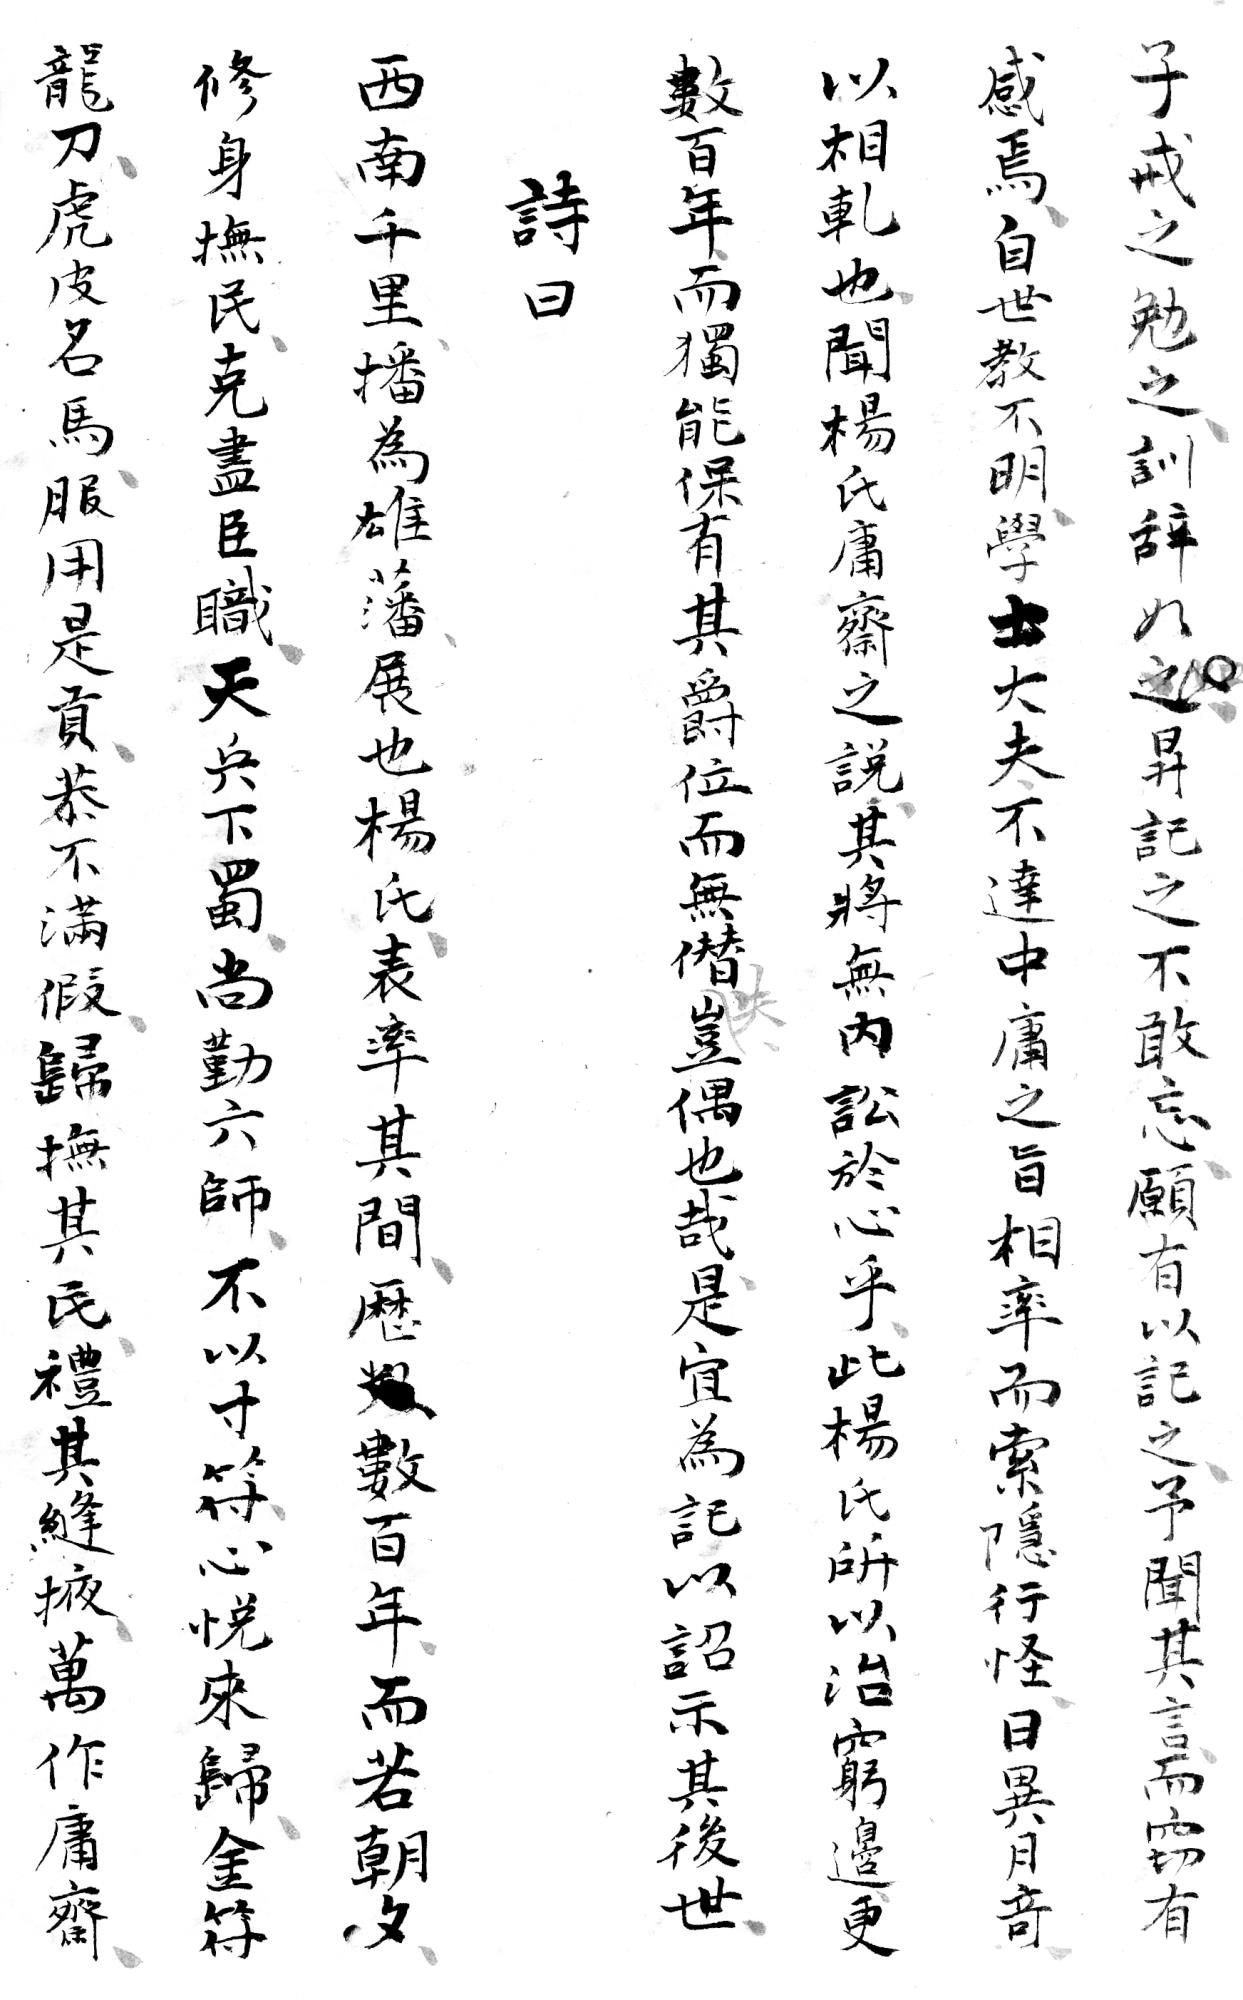 子戒之勉之訓辞如之昇記之不敢忘願有以記之予聞其言而窃有
感焉自世教不明學士大夫不達中庸之旨相率而索隱行怪日異月奇
以相軋也聞楊氏庸齋之說其將無內訟於心乎此楊氏所以治窮邊更
數百年而獨能保有其爵位而無僣豈偶也哉是宜為記以詔示其後世
詩曰
西南千里播為雄藩展也楊氏表率其間歷數百年而若朝夕
修身撫民克盡臣職天兵下蜀尚勤六師不以寸符心悅來歸金符
龍刀虎皮名馬服用是貢恭不滿假歸撫其民禮其縫掖萬作庸齋